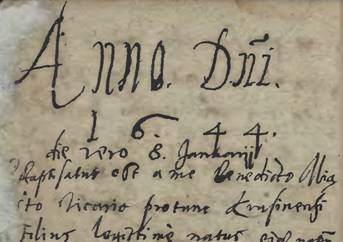 Anno. Dñi.
1 6. 4 4.
die vero 8. Januarij
Baptisatus est a me Benedicto
Vicario protunc Krusinensi
Filius legittime natus